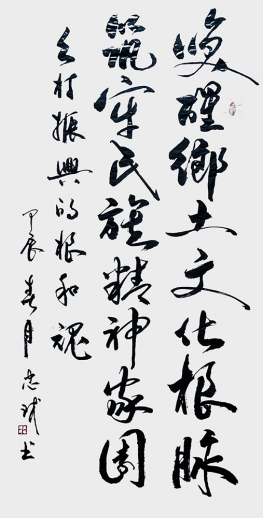 唤醒鄉土文化根脉
筑牢民族精神家園
乡村振興的根和魂
甲辰春月志斌书